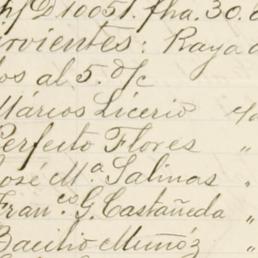 D 10051. fha. 30. d
rvientes: Raya d
os al 5. o/c
Márcos Licerio
Perfecto Flores "
José Ma. Salinas "
Fran.co G. Castañeda "
Bacilio Muñóz "